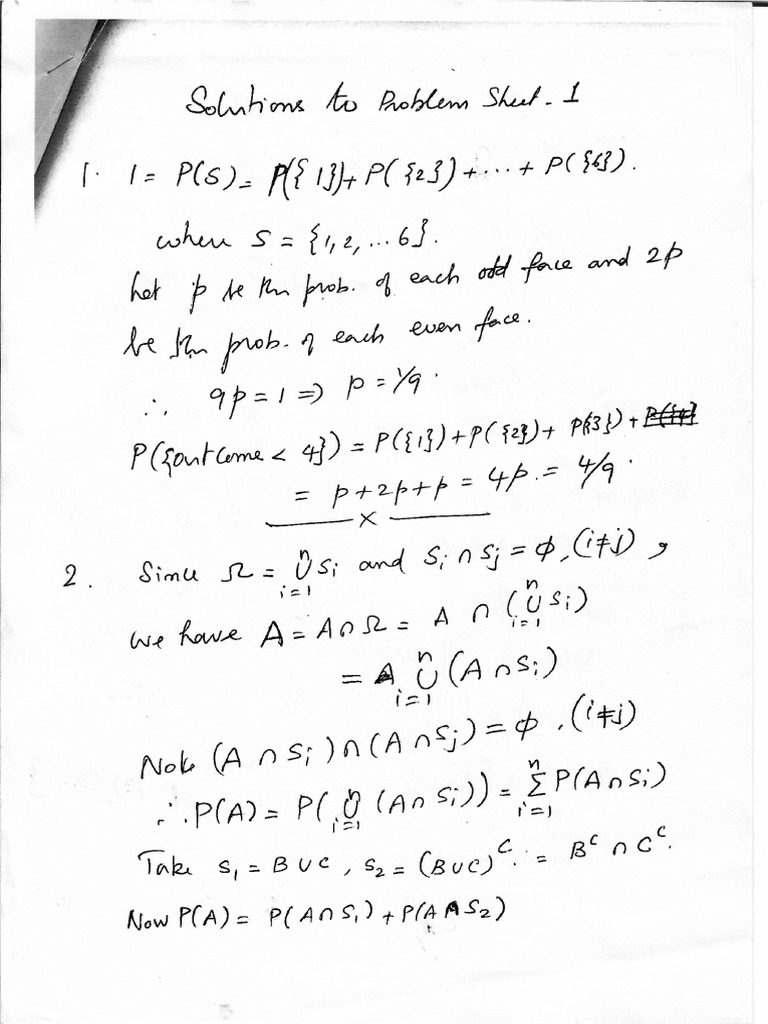 Solutions to Problem Sheet - 1
1. 1 = P(S) = P({1}) + P({2}) + ... + P({6}).
where S = {1, 2, ... 6}.
Let p be the prob. of each odd face and 2p
be the prob. of each even face.
∴ 9p = 1 ⇒ p = 1/9.
P({outcome < 4}) = P({1}) + P({2}) + P({3}) +
= p + 2p + p = 4p. = 4/9.
x
2. Since Ω = ⋃ⁿᵢ₌₁ Sᵢ and Sᵢ ∩ Sⱼ = ϕ, (i ≠ j),
we have A = A ∩ Ω = A ∩ (⋃ⁿᵢ₌₁ Sᵢ)
= ⋃ⁿᵢ₌₁ (A ∩ Sᵢ)
Note (A ∩ Sᵢ) ∩ (A ∩ Sⱼ) = ϕ, (i ≠ j)
∴ P(A) = P(⋃ⁿᵢ₌₁ (A ∩ Sᵢ)) = Σⁿᵢ₌₁ P(A ∩ Sᵢ)
Take S₁ = B ∪ C, S₂ = (B ∪ C)ᶜ. = Bᶜ ∩ Cᶜ.
Now P(A) = P(A ∩ S₁) + P(A ∩ S₂)